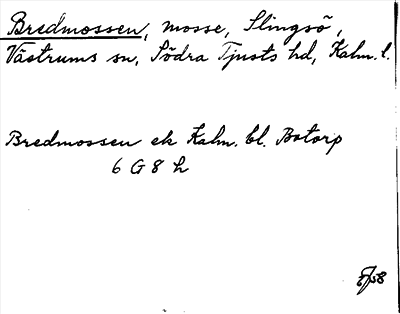 Bredmossen, mosse, Slingsö,
Västrums sn, Södra Tjusts hd, Kalm. l.
Bredmossen ek Kalm. bl. Botorp
6 G 8 h